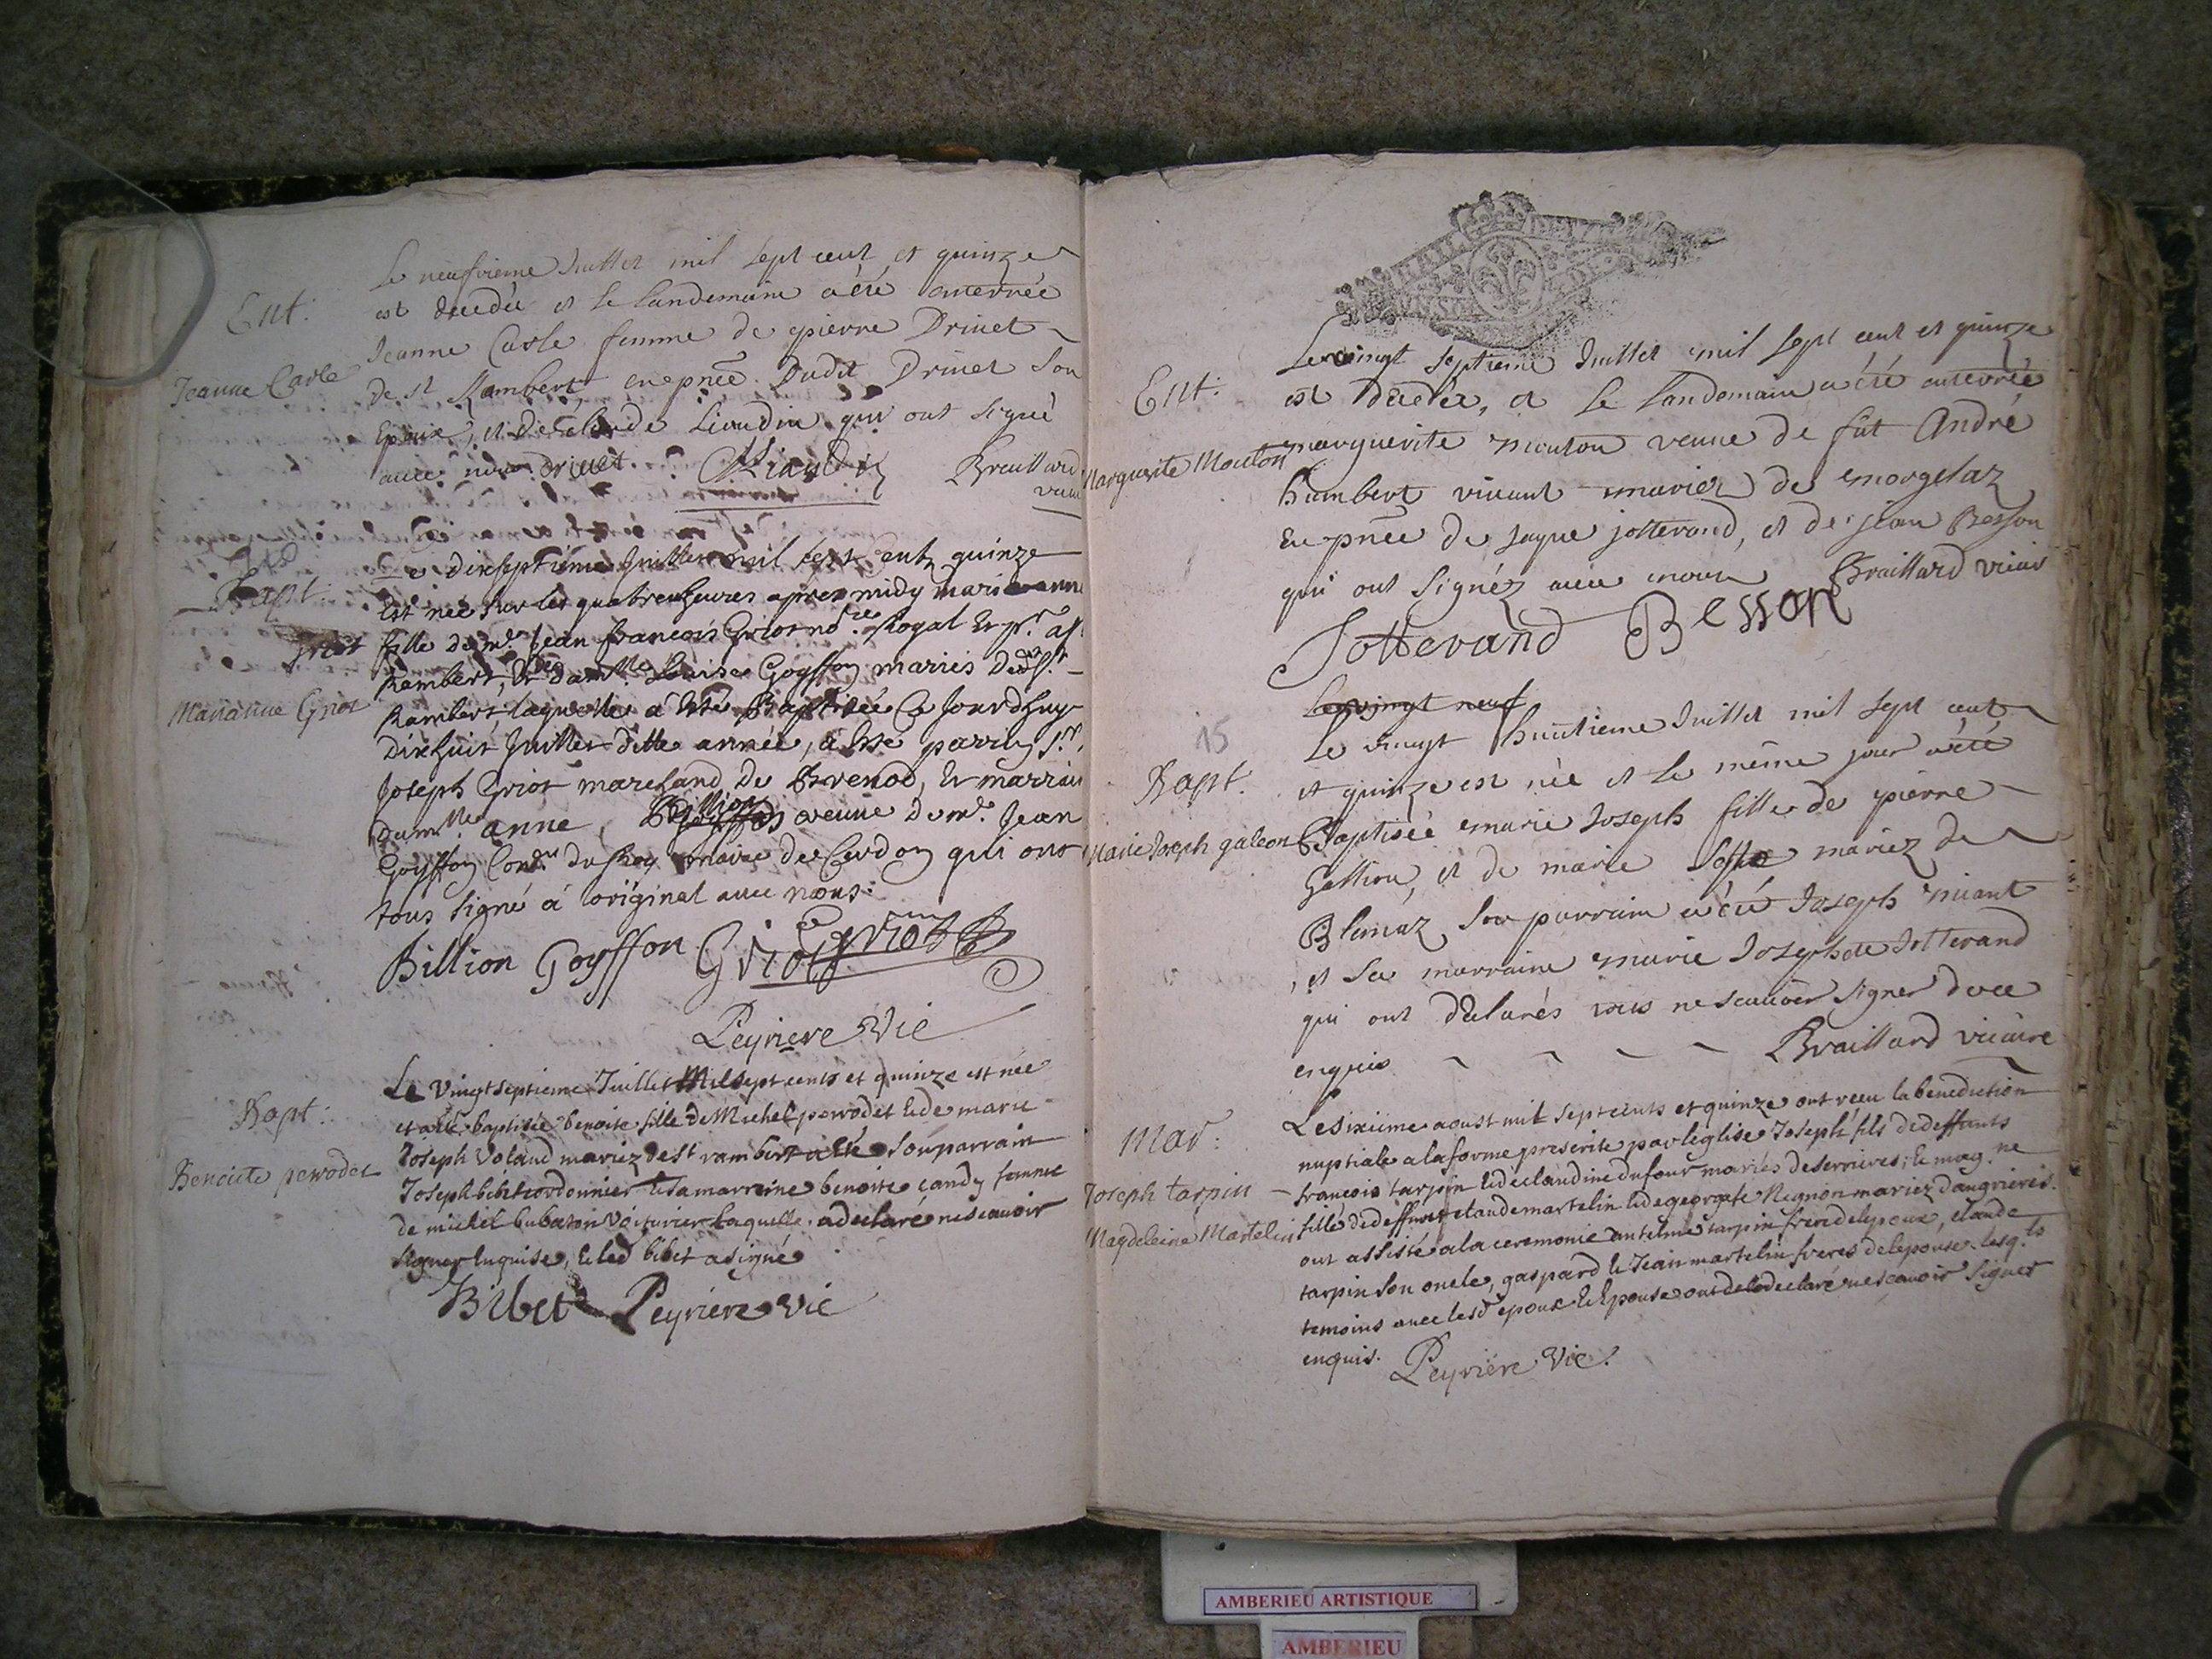 Ent:
Jeanne Carle
Le neufvieme Juillet mil sept cent et quinze
est decedée et le landemain a été enterrée
Jeanne Carle femme de pierre Drivet
de st Rambert, en pnce Dudit Drivet son
Epoux, et de Claude Liaudin qui ont signé
avec nous Drivet. CLiaudin Braillard
vicaire
Bapt:
griot
Marianne Griot
Le dixseptieme Juillet mil sept cent quinze
Est née sur les quatre heures apres midy marie anne
fille de mr Jean francois Griot nore Royal Et pr a st
Rambert, Et de damlle Louise Goyffon mariés dud st
Rambert, laquelle a Esté Baptisée Ce Jourdhuy
Dixhuit Juillet ditte année, a Esté parrin sr
Joseph Griot marchand de Brenod, Et marraine
damlle anne Billion veuve de mr Jean
Goyffon du Roy maire de Cerdon qui ont
tous signé a original avec nous:
Billion Goyffon Griot Griot
Peyriere Vic
Bapt:
Benoite perrodet
Le vingtseptieme Juillet Mil sept cents et quinze est née
et a été baptisée benoite fille de Michel perrodet et de marie
Joseph Volaud mariez de st rambert a été son parrain
Joseph bibet cordonnier et sa marraine benoite candy femme
de michel bubaton voiturier laquelle a declaré ne scavoir
signer enquise, et led bibet a signé
Bibet Peyriere vic
Ent:
Marguerite Mouton
Le vingt septieme Juillet mil sept cent et quinze
est decedée, et le landemain a été enterrée
marguerite mouton veuve de fût André
humbert vivant mariez de morgelaz
En pnce de jaque jotterand, et de jean Besson
qui ont signéz avec nous Braillard vicair
Jotterand Besson
15
Bapt.
Marie Joseph galeon
Le vingt neuf
Le vingt huitieme Juillet mil sept cent
et quinze est née et le même jour a été
Baptisée marie Joseph fille de pierre
Gallion, et de marie mariez de
Blemaz, son parrain a été Joseph
, et sa marraine marie Josephte Jotterand
qui ont déclarés ne scauoir signer de ce
enquis Braillard vicaire
Mar:
Joseph tarpin
Magdeleine Martelin
Le sixiéme aoust mil sept cents et quinze ont receu la benediction
nuptiale a la forme prescrite par leglise Joseph fils de deffunts
francois tarpin et de claudine dufour mariés de serrieres; et mag.ne
fille de deffunt claude martelin et de georgete Mignon mariez daugrieres.
ont assisté a la ceremonie antelme tarpin frere delepoux, claude
tarpin son oncle, gaspard et Jean martelin freres delepouse. lesq.ls
temoins avec lesd epoux et Epouse ont declaré ne scavoir signer
enquis. Peyriere Vic.
AMBERIEU ARTISTIQUE
AMBERIEU